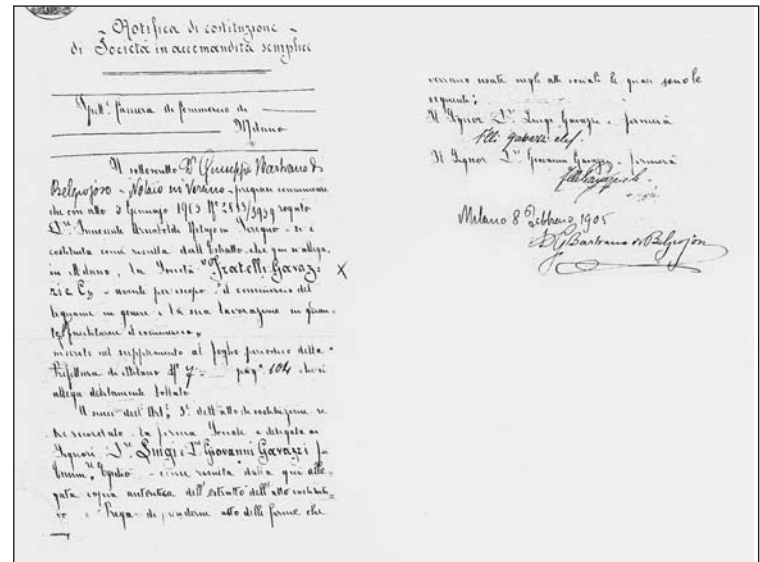 Notifica di costituzione
di Società in accomandita semplice
Spett. Camera di Commercio di
Milano
Il sottoscritto Dr Giuseppe Bastrano di
Belgiojoso - Notaio in Verano - pregiasi comunicare
che con atto 3 Gennajo 1905 Nº 2813/3939 rogato
Dr. Innocente Notajo in - si è
costituita come risulta dall'Estratto che qui s'allega,
in Milano, la Società "Fratelli Gavaz-
zi e C." - avente per iscopo "il commercio del
legname in genere e la sua lavorazione in quan-
to facilitarne il commercio"
inserito nel supplemento al foglio periodico della
Prefettura di Milano Nº 7 = pag. 104 che si
allega debitamente bollato
A sensi dell'Art. 3º dell'atto di costituzione
la firma Sociale è delegata ai
Signori Dr. Luigi e Dr. Giovanni Gavazzi
Egidio - come risulta dalla qui alle-
gata copia autentica dell'estratto dell'atto
Prega di prenderne atto delle firme che
verranno usate negli atti sociali le quali sono le
seguenti:
Il Signor Dr. Luigi Gavazzi - firmerà
F.lli Gavazzi e C.
Il Signor Dr. Giovanni Gavazzi - firmerà
F.lli Gavazzi e C.
Milano 8 Febbraio 1905
Dr G Bastrano di Belgiojoso